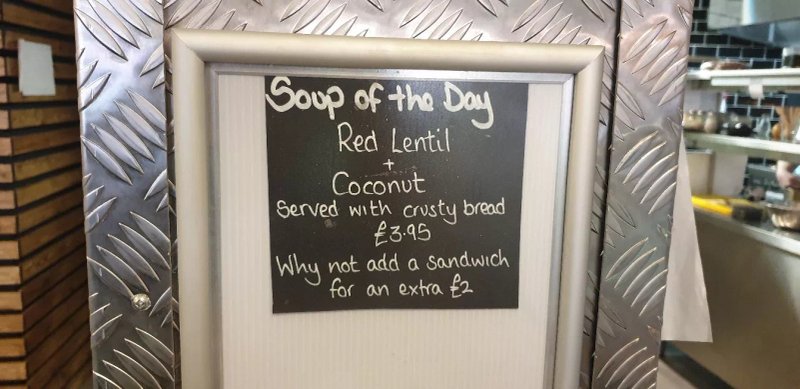 Soup of the Day
Red Lentil
+
Coconut
Served with crusty bread
£3.95
Why not add a sandwich
for an extra £2